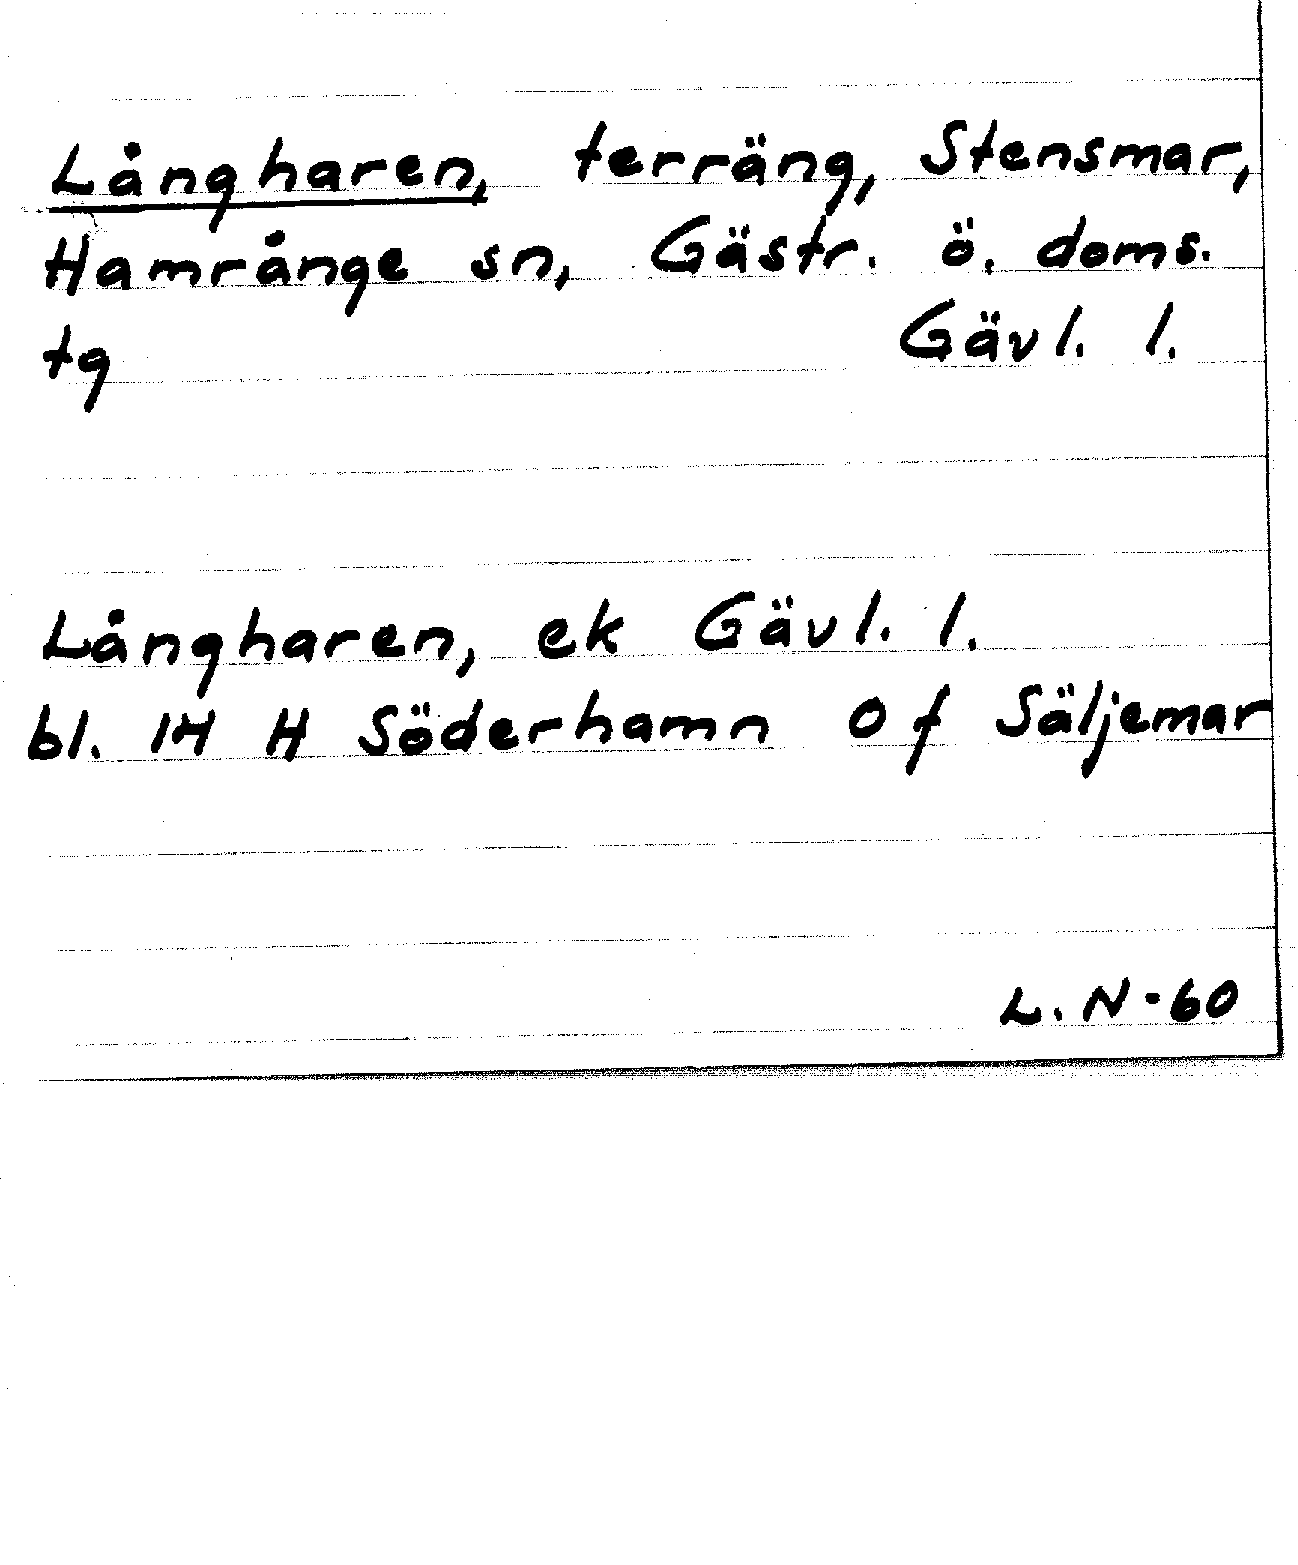 Långharen, terräng, Stensmar,
Hamrånge sn, Gästr. ö. doms.
tg Gävl. l.
Långharen, ek Gävl. l.
bl. 14 H Söderhamn O f Säljemar
L. N - 60